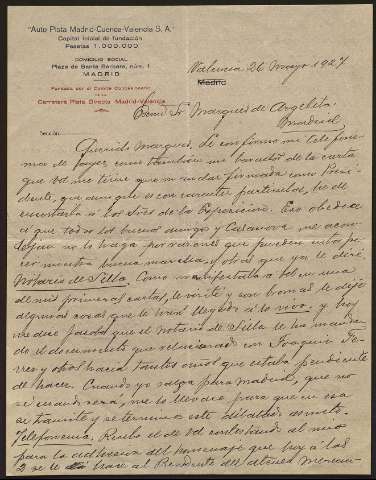 "Auto Pista Madrid-Cuenca-Valencia S. A."
Capital inicial de fundación
Pesetas 1.000.000
DOMICILIO SOCIAL
Plaza de Santa Bárbara, núm. 1
MADRID
Fundada por el Comité Concesionario
de la
Carretera Pista Directa Madrid-Valencia
Valencia 26 Mayo 1927
Madrid
Excmo Sr Marques de Argelita
Madrid
Querido Marques, le confirmo mi telefone-
ma de ayer como tambien me
que Vd me tiene que mandar firmada como Presi-
dente, que aunque es con caracter particular, he de
a los Sres de la Exposicion. Eso obedece
a que todos los buenos amigos y Casanova me acon-
sejan no lo haga por razones que pueden
nuestra buena marcha, y otras que ya le diré.
Notario de Silla. Como manifestaba a Vd en una
de mis primeras cartas, le visité y con bromas le dejé
algunas cosas que le han llegado a lo vivo, y hoy
me dice que el notario de Silla le ha manda-
do el documento que relacionado con Joaquin Fe-
rrer y otros hacia tantos años que estaba pendiente
de hacer. Cuando yo salga para Madrid, que no
sé cuando será, me lo llevaré para que en esa
se tramite y se termine este dilatado asunto.
Telefonema. Recibo el de Vd contestando al mio
para la adhesion del homenaje que hoy a las
2 se le hace al Presidente del Ateneo Mercan-